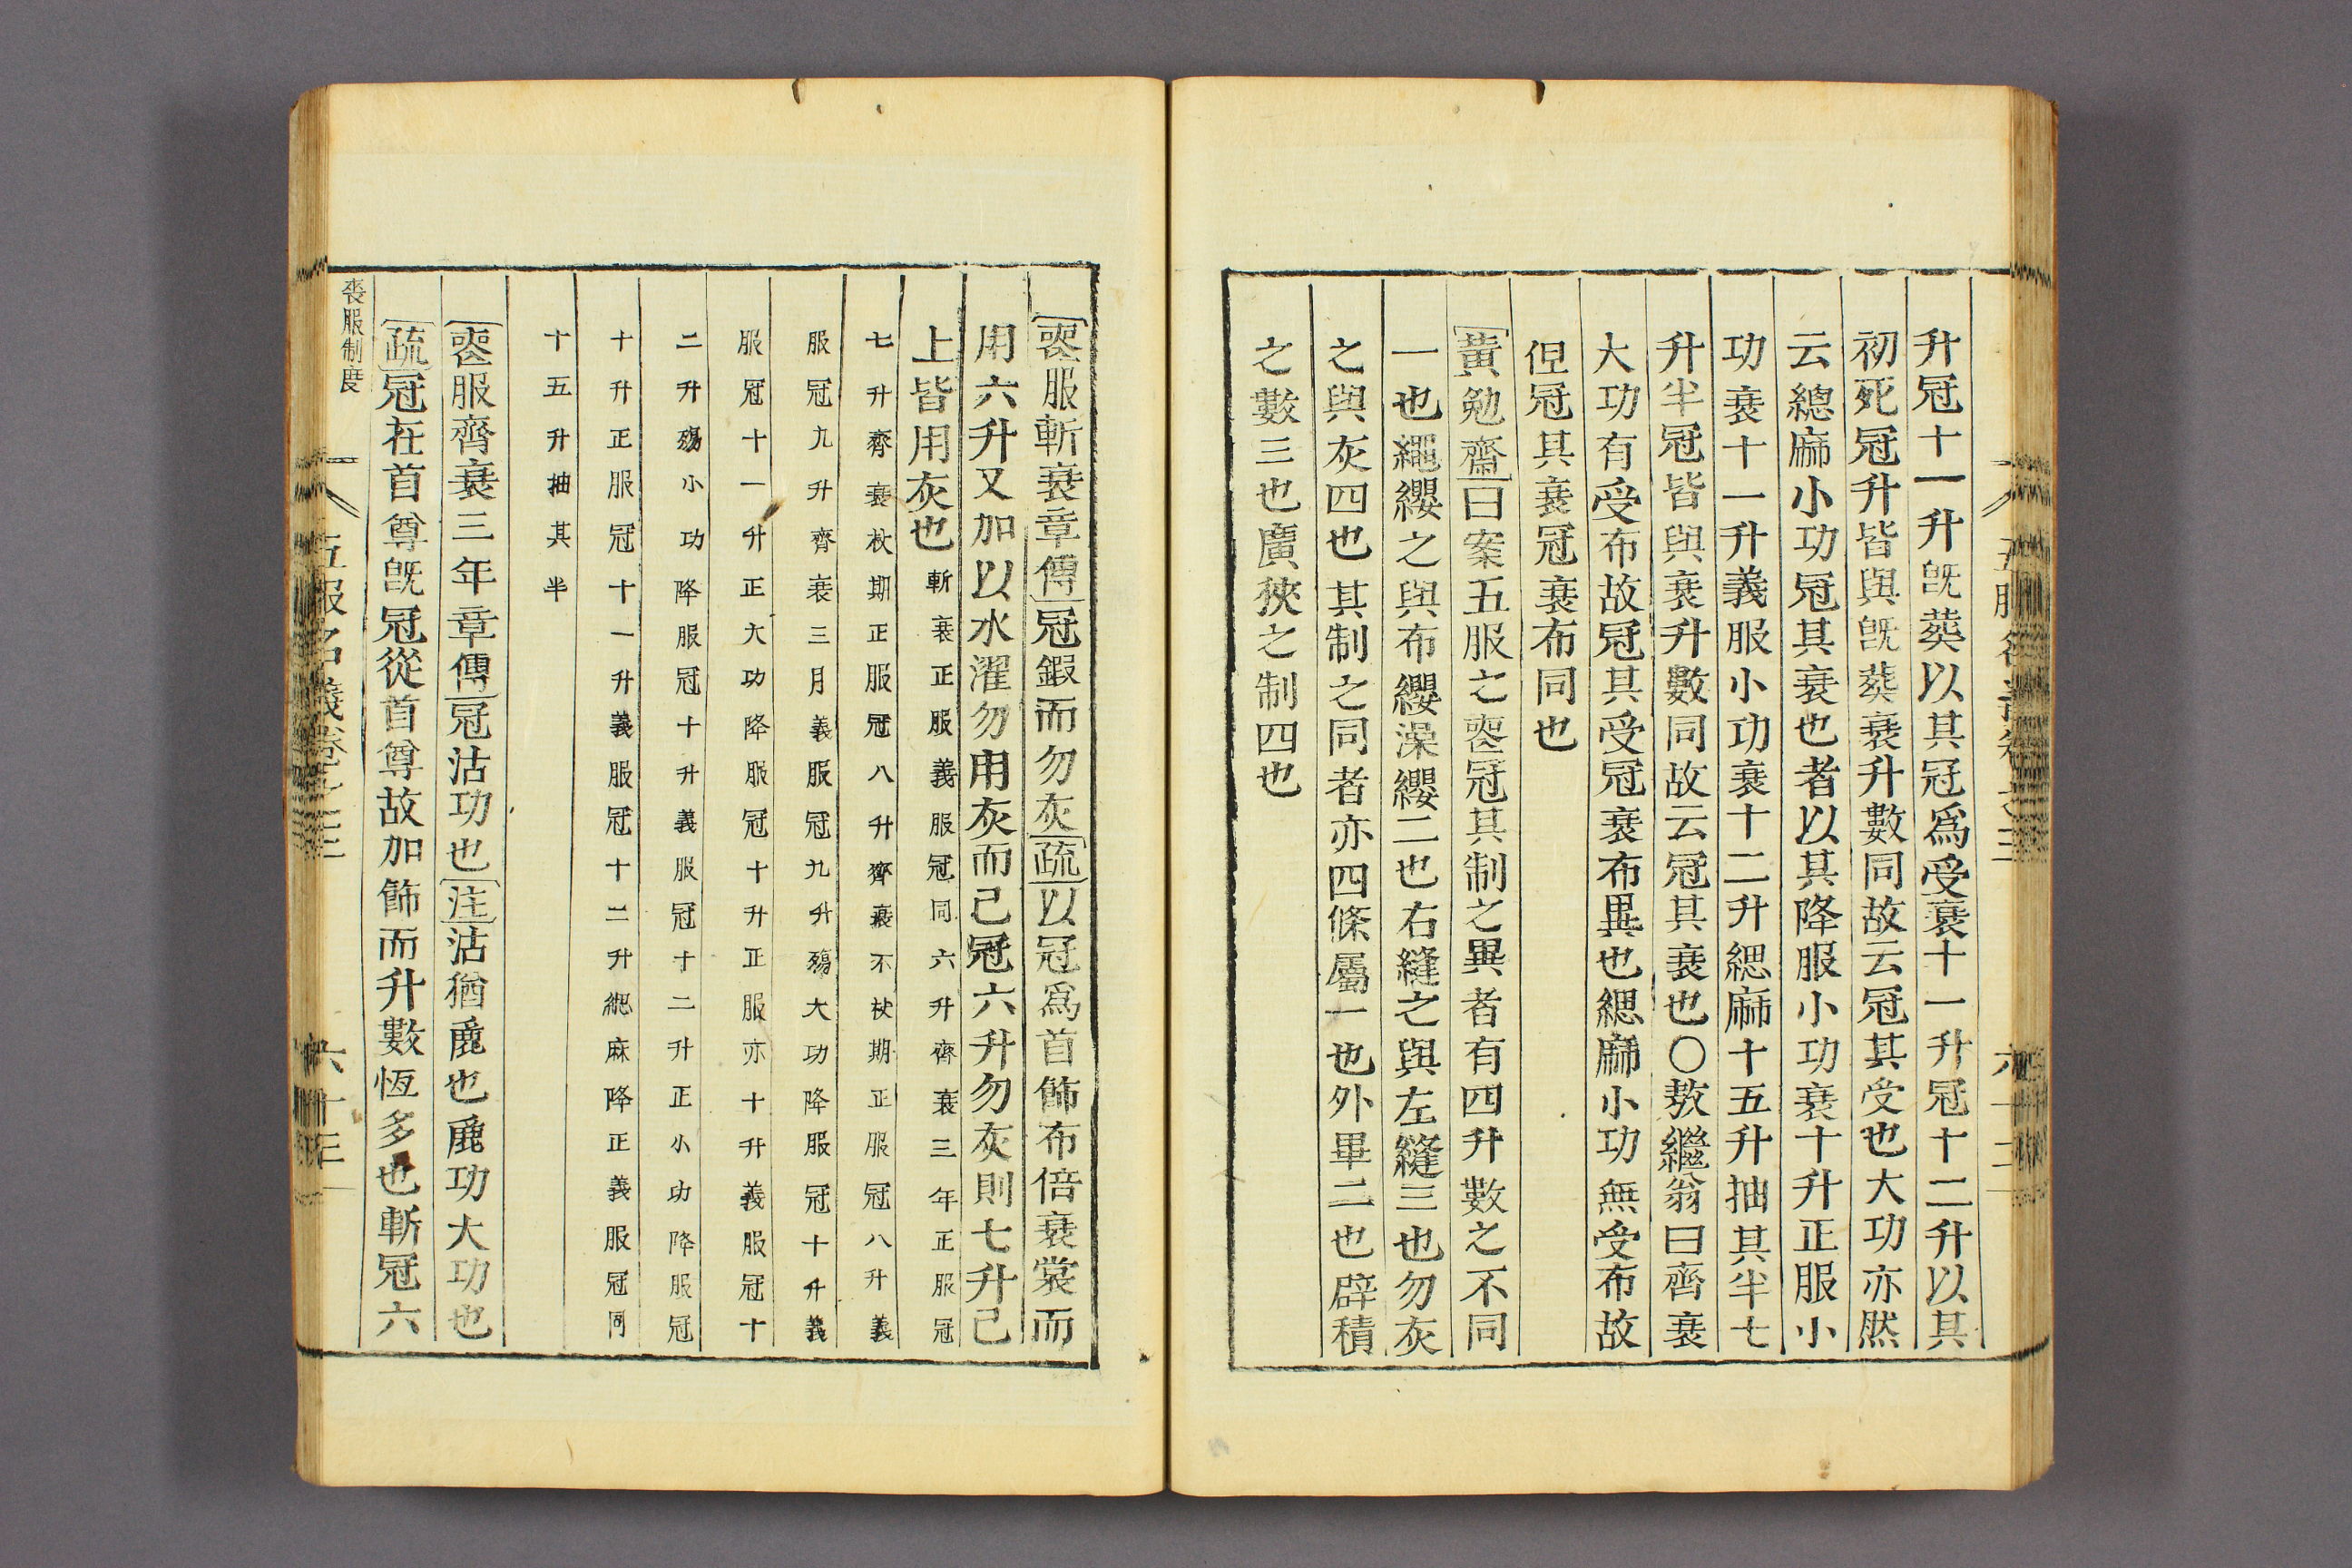 升冠十一升旣葬以其冠爲受衰十一升冠十二升以其
初死冠升皆與旣葬衰升數同故云冠其受也大功亦然
云總麻小功冠其衰也者以其降服小功衰十升正服小
功衰十一升義服小功衰十二升緦麻十五升抽其半七
升半冠皆與衰升數同故云冠其衰也○敖繼翁曰齊衰
大功有受布故冠其受冠衰布異也緦麻小功無受布故
但冠其衰冠衰布同也
黃勉齋曰案五服之喪冠其制之異者有四升數之不同
一也繩纓之與布纓澡纓二也右縫之與左縫三也勿灰
之與灰四也其制之同者亦四條屬一也外畢二也辟積
之數三也廣狹之制四也
喪服斬衰章傳冠鍛而勿灰疏以冠爲首飾布倍衰裳而
用六升又加以水濯勿用灰而已冠六升勿灰則七升已
上皆用灰也斬衰正服義服冠同六升齊衰三年正服冠
七升齊衰杖期正服冠八升齊衰不杖期正服冠八升義
服冠九升齊衰三月義服冠九升殤大功降服冠十升義
服冠十一升正大功降服冠十升正服亦十升義服冠十
二升殤小功降服冠十升義服冠十二升正小功降服冠
十升正服冠十一升義服冠十二升緦麻降正義服冠同
十五升抽其半
喪服齊衰三年章傳冠沽功也注沽猶麤也麤功大功也
疏冠在首尊旣冠從首尊故加飾而升數恆多也斬冠六
喪服制度
五服名義卷之三
六十三